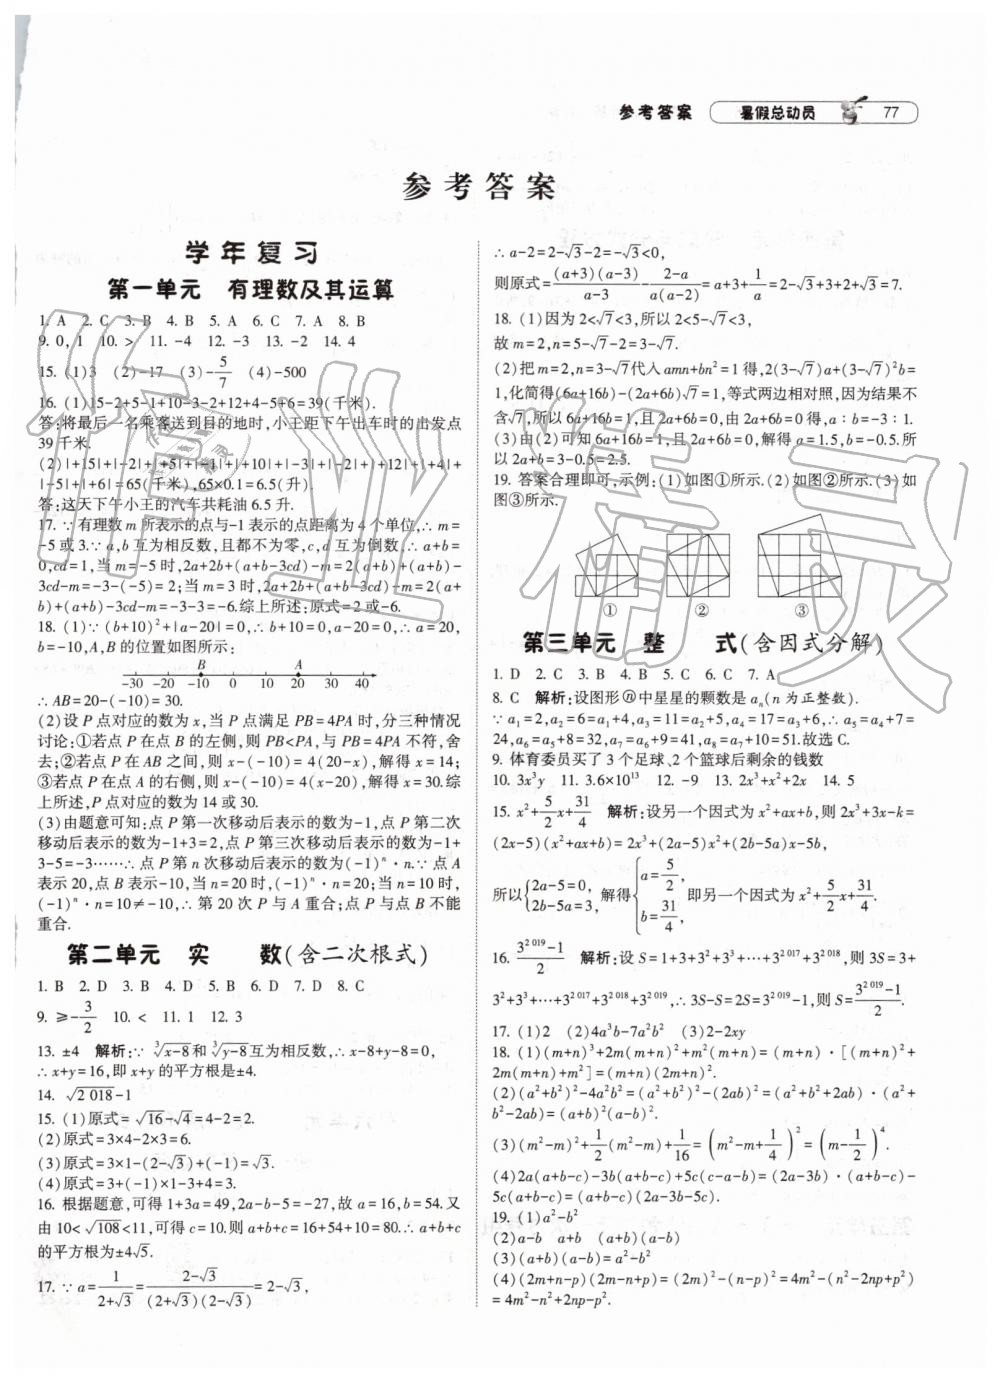 参考答案 暑假总动员 77
参考答案
学年复习
第一单元 有理数及其运算
1. A 2. C 3. B 4. B 5. A 6. C 7. A 8. B
9. 0, 1 10. > 11. -4 12. -3 13. -2 14. 4
15. (1)3 (2)-17 (3)-5/7 (4)-500
16. (1)15-2+5-1+10-3-2+12+4-5+6=39(千米).
答:将最后一名乘客送到目的地时,小王距下午出车时的出发点
39千米.
(2)|+15|+|-2|+|+5|+|-1|+|+10|+|-3|+|-2|+|+12|+|+4|+
|-5|+|+6|=65(千米),65×0.1=6.5(升).
答:这天下午小王的汽车共耗油6.5升.
17. ∵有理数m所表示的点与-1表示的点距离为4个单位,∴m=
-5或3.∵a,b互为相反数,且都不为零,c,d互为倒数,∴a+b=
0,cd=1,当m=-5时,2a+2b+(a+b-3cd)-m=2(a+b)+(a+b)-
3cd-m=-3-(-5)=2;当m=3时,2a+2b+(a+b-3cd)-m=2(a+
b)+(a+b)-3cd-m=-3-3=-6.综上所述:原式=2或-6.
18. (1)∵(b+10)²+|a-20|=0,∴b+10=0,a-20=0,∴a=20,
b=-10,A,B的位置如图所示:
B A
-30 -20 -10 0 10 20 30
∴AB=20-(-10)=30.
(2)设P点对应的数为x,当P点满足PB=4PA时,分三种情况
讨论:①若点P在点B的左侧,则PB<PA,与PB=4PA不符,舍
去;②若点P在AB之间,则x-(-10)=4(20-x),解得x=14;
③若点P在点A的右侧,则x-(-10)=4(x-20),解得x=30.综
上所述,P点对应的数为14或30.
(3)由题意可知:点P第一次移动后表示的数为-1,点P第二次
移动后表示的数为-1+3=2,点P第三次移动后表示的数为-1+
3-5=-3……∴点P第n次移动后表示的数为(-1)ⁿ·n.∵点A
表示20,点B表示-10,当n=20时,(-1)ⁿ·n=20;当n=10时,
(-1)ⁿ·n=10≠-10,∴第20次P与A重合;点P与点B不能
重合.
第二单元 实 数(含二次根式)
1. B 2. D 3. B 4. D 5. B 6. D 7. D 8. C
9. ≥-3/2 10. < 11. 1 12. 3
13. ±4 解析:∵∛(x-8)和∛(y-8)互为相反数,∴x-8+y-8=0,
∴x+y=16,即x+y的平方根是±4.
14. √2 018-1
15. (1)原式=√16-√4=4-2=2.
(2)原式=3×4-2×3=6.
(3)原式=3×1-(2-√3)+(-1)=√3.
(4)原式=3+(-1)×1-3+4=3.
16. 根据题意,可得1+3a=49,2a-b-5=-27,故a=16,b=54.又
由10<√108<11,可得c=10.则a+b+c=16+54+10=80.∴a+b+c
的平方根为±4√5.
17. ∵a=1/(2+√3)=(2-√3)/((2+√3)(2-√3))=2-√3,
∴a-2=2-√3-2=-√3<0,
则原式=(a+3)(a-3)/(a-3)-(2-a)/(a(a-2))=a+3+1/a=2-√3+3+2+√3=7.
18. (1)因为2<√7<3,所以2<5-√7<3,
故m=2,n=5-√7-2=3-√7.
(2)把m=2,n=3-√7代入amn+bn²=1得,2(3-√7)a+(3-√7)²b=
1,化简得(6a+16b)-(2a+6b)√7=1,等式两边相对照,因为结果不
含√7,所以6a+16b=1,且2a+6b=0,由2a+6b=0得,a:b=-3:1.
(3)由(2)可知6a+16b=1,且2a+6b=0,解得a=1.5,b=-0.5.所
以2a+2b=3-0.5=2.5.
19. 答案合理即可,示例:(1)如图①所示.(2)如图②所示.(3)如
图③所示.
① ② ③
第三单元 整 式(含因式分解)
1. D 2. C 3. B 4. B 5. C 6. C 7. A
8. C 解析:设图形ⓝ中星星的颗数是aₙ(n为正整数).
∵a₁=2,a₂=6=a₁+4,a₃=11=a₂+5,a₄=17=a₃+6,∴a₅=a₄+7=
24,a₆=a₅+8=32,a₇=a₆+9=41,a₈=a₇+10=51.故选C.
9. 体育委员买了3个足球、2个篮球后剩余的钱数
10. 3x³y 11. 3.6×10¹³ 12. -9 13. 2x³+x²+2x 14. 5
15. x²+5/2x+31/4 解析:设另一个因式为x²+ax+b,则2x³+3x-k=
(2x-5)(x²+ax+b)=2x³+(2a-5)x²+(2b-5a)x-5b,
所以{2a-5=0, 2b-5a=3, 解得{a=5/2, b=31/4, 即另一个因式为x²+5/2x+31/4.
16. (3^2 019-1)/2 解析:设S=1+3+3²+3³+…+3^2 017+3^2 018,则3S=3+
3²+3³+…+3^2 017+3^2 018+3^2 019,∴3S-S=2S=3^2 019-1,则S=(3^2 019-1)/2.
17. (1)2 (2)4a³b-7a²b² (3)2-2xy
18. (1)(m+n)³+2m(m+n)²+m²(m+n)=(m+n)·[(m+n)²+
2m(m+n)+m²]=(m+n)(2m+n)².
(2)(a²+b²)²-4a²b²=(a²+b²)²-(2ab)²=(a²+b²+2ab)·(a²+
b²-2ab)=(a+b)²(a-b)².
(3)(m²-m)²+1/2(m²-m)+1/16=(m²-m+1/4)²=(m-1/2)⁴
(4)2a(a+b-c)-3b(a+b-c)+5c(c-a-b)=(2a-3b)·(a+b-c)-
5c(a+b-c)=(a+b-c)(2a-3b-5c).
19. (1)a²-b²
(2)a-b a+b (a+b)(a-b)
(3)(a+b)(a-b)=a²-b²
(4)(2m+n-p)(2m-n+p)=(2m)²-(n-p)²=4m²-(n²-2np+p²)
=4m²-n²+2np-p².